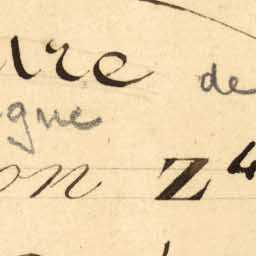 ure de
gne
on Z4